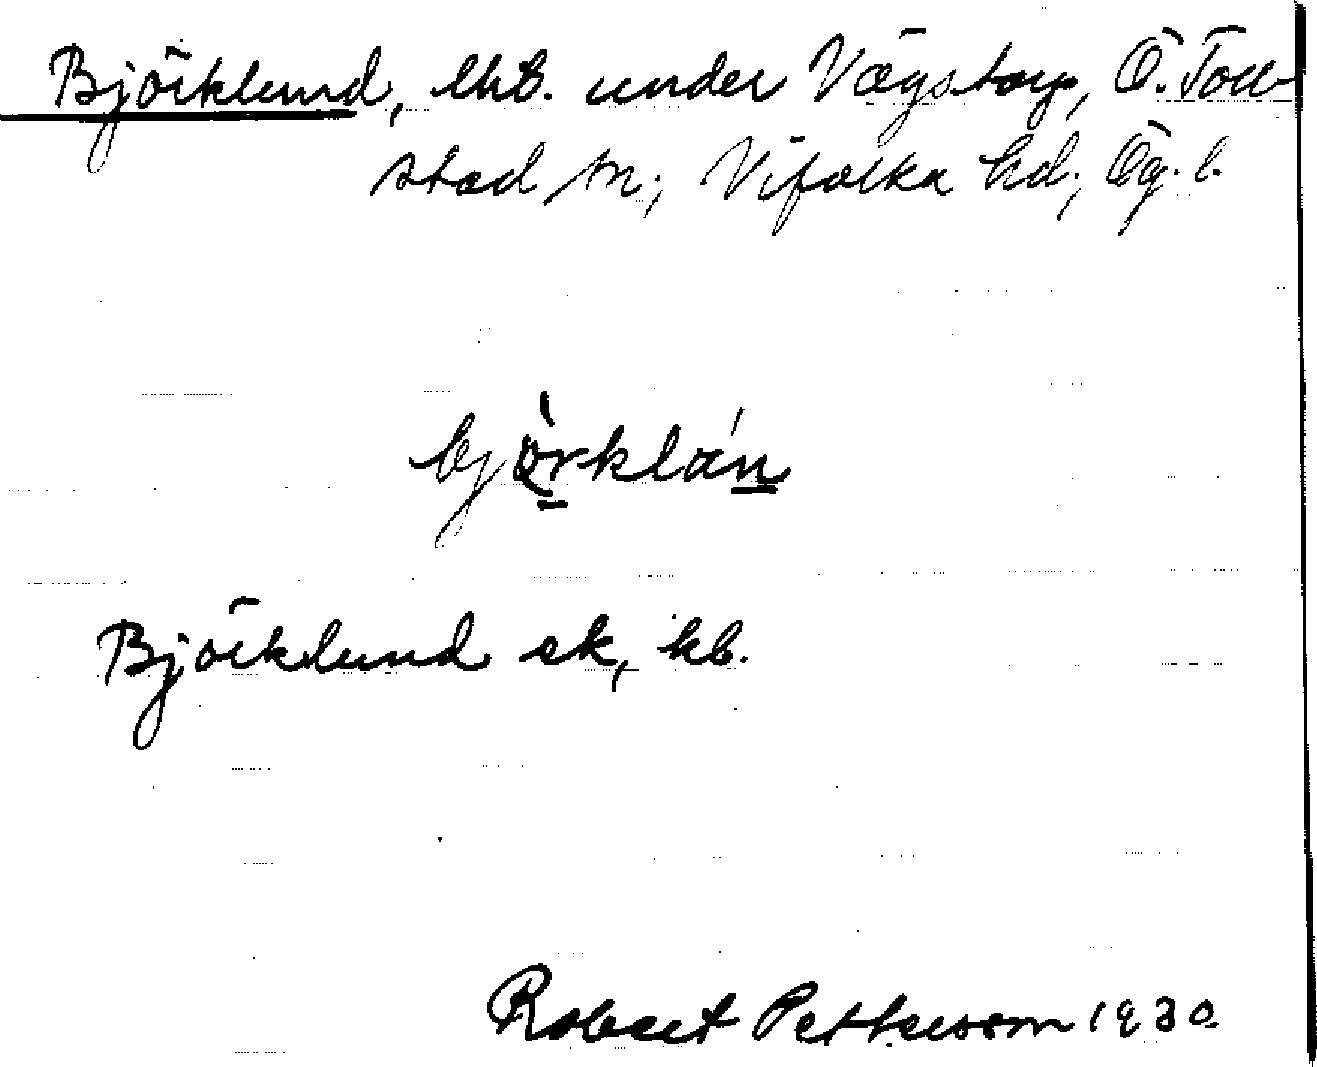 Björklund, lht. under Vägstorp, Ö. Toll-
stad sn; Vifolka hd; Ög. l.
björklán
Björklund ek, kb.
Robert Pettersson 1930